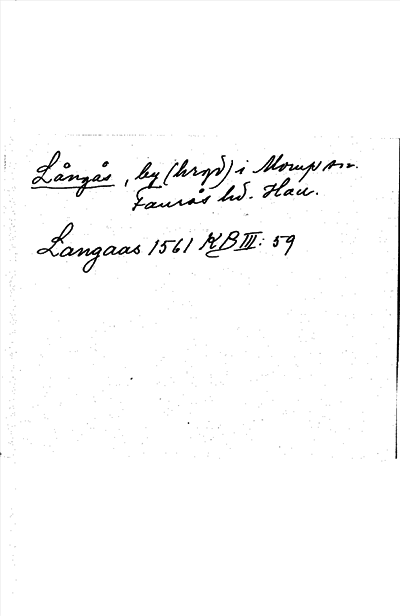 Långås, by (hrgd) i Morup sn.
Faurås hd. Hall.
Langaas 1561 KB III: 59